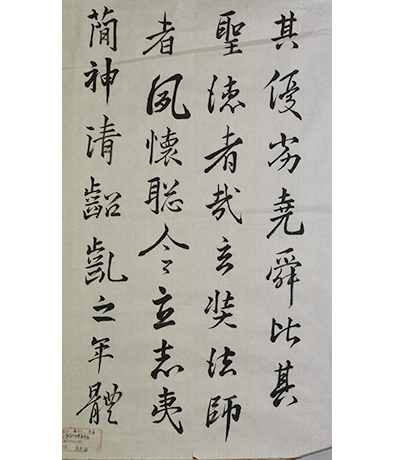 其優劣堯舜比其
聖德者哉玄奘法師
者夙懷聰令立志夷
蕑神清齠齓之年體